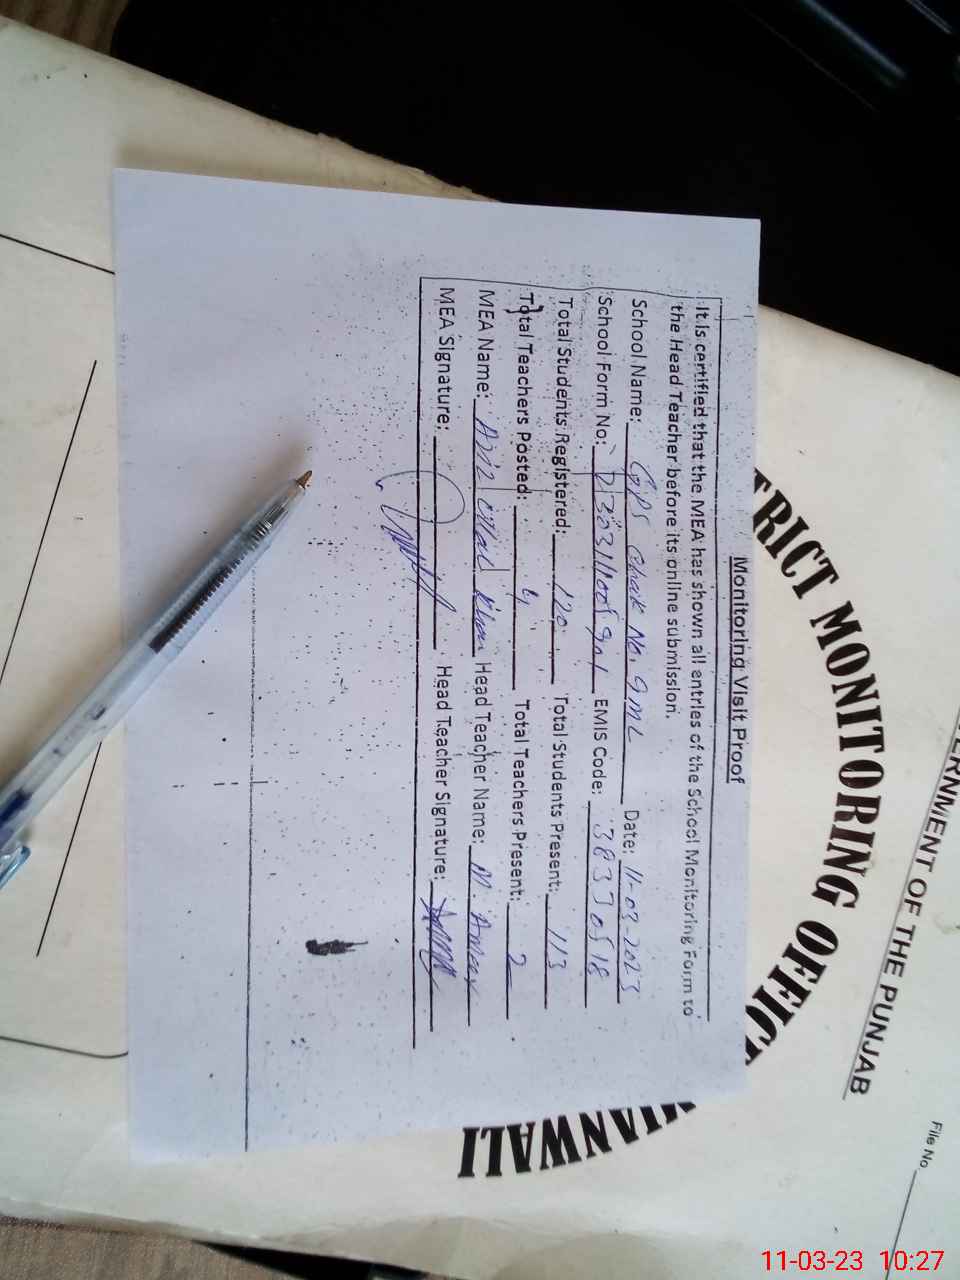 Monitoring Visit Proof
It is certified that the MEA has shown all entries of the School Monitoring Form to
the Head Teacher before its online submission.
School Name: GPS Chak No. 9 ML Date: 11-03-2023
School Form No: EMIS Code: 38330518
Total Students Registered: 120 Total Students Present: 113
Total Teachers Posted: 4 Total Teachers Present: 2
MEA Name: Khan Head Teacher Name: M.
MEA Signature: Head Teacher Signature:
ERNMENT OF THE PUNJAB
TRICT MONITORING OFFIC
IANWALI
File No
11-03-23 10:27